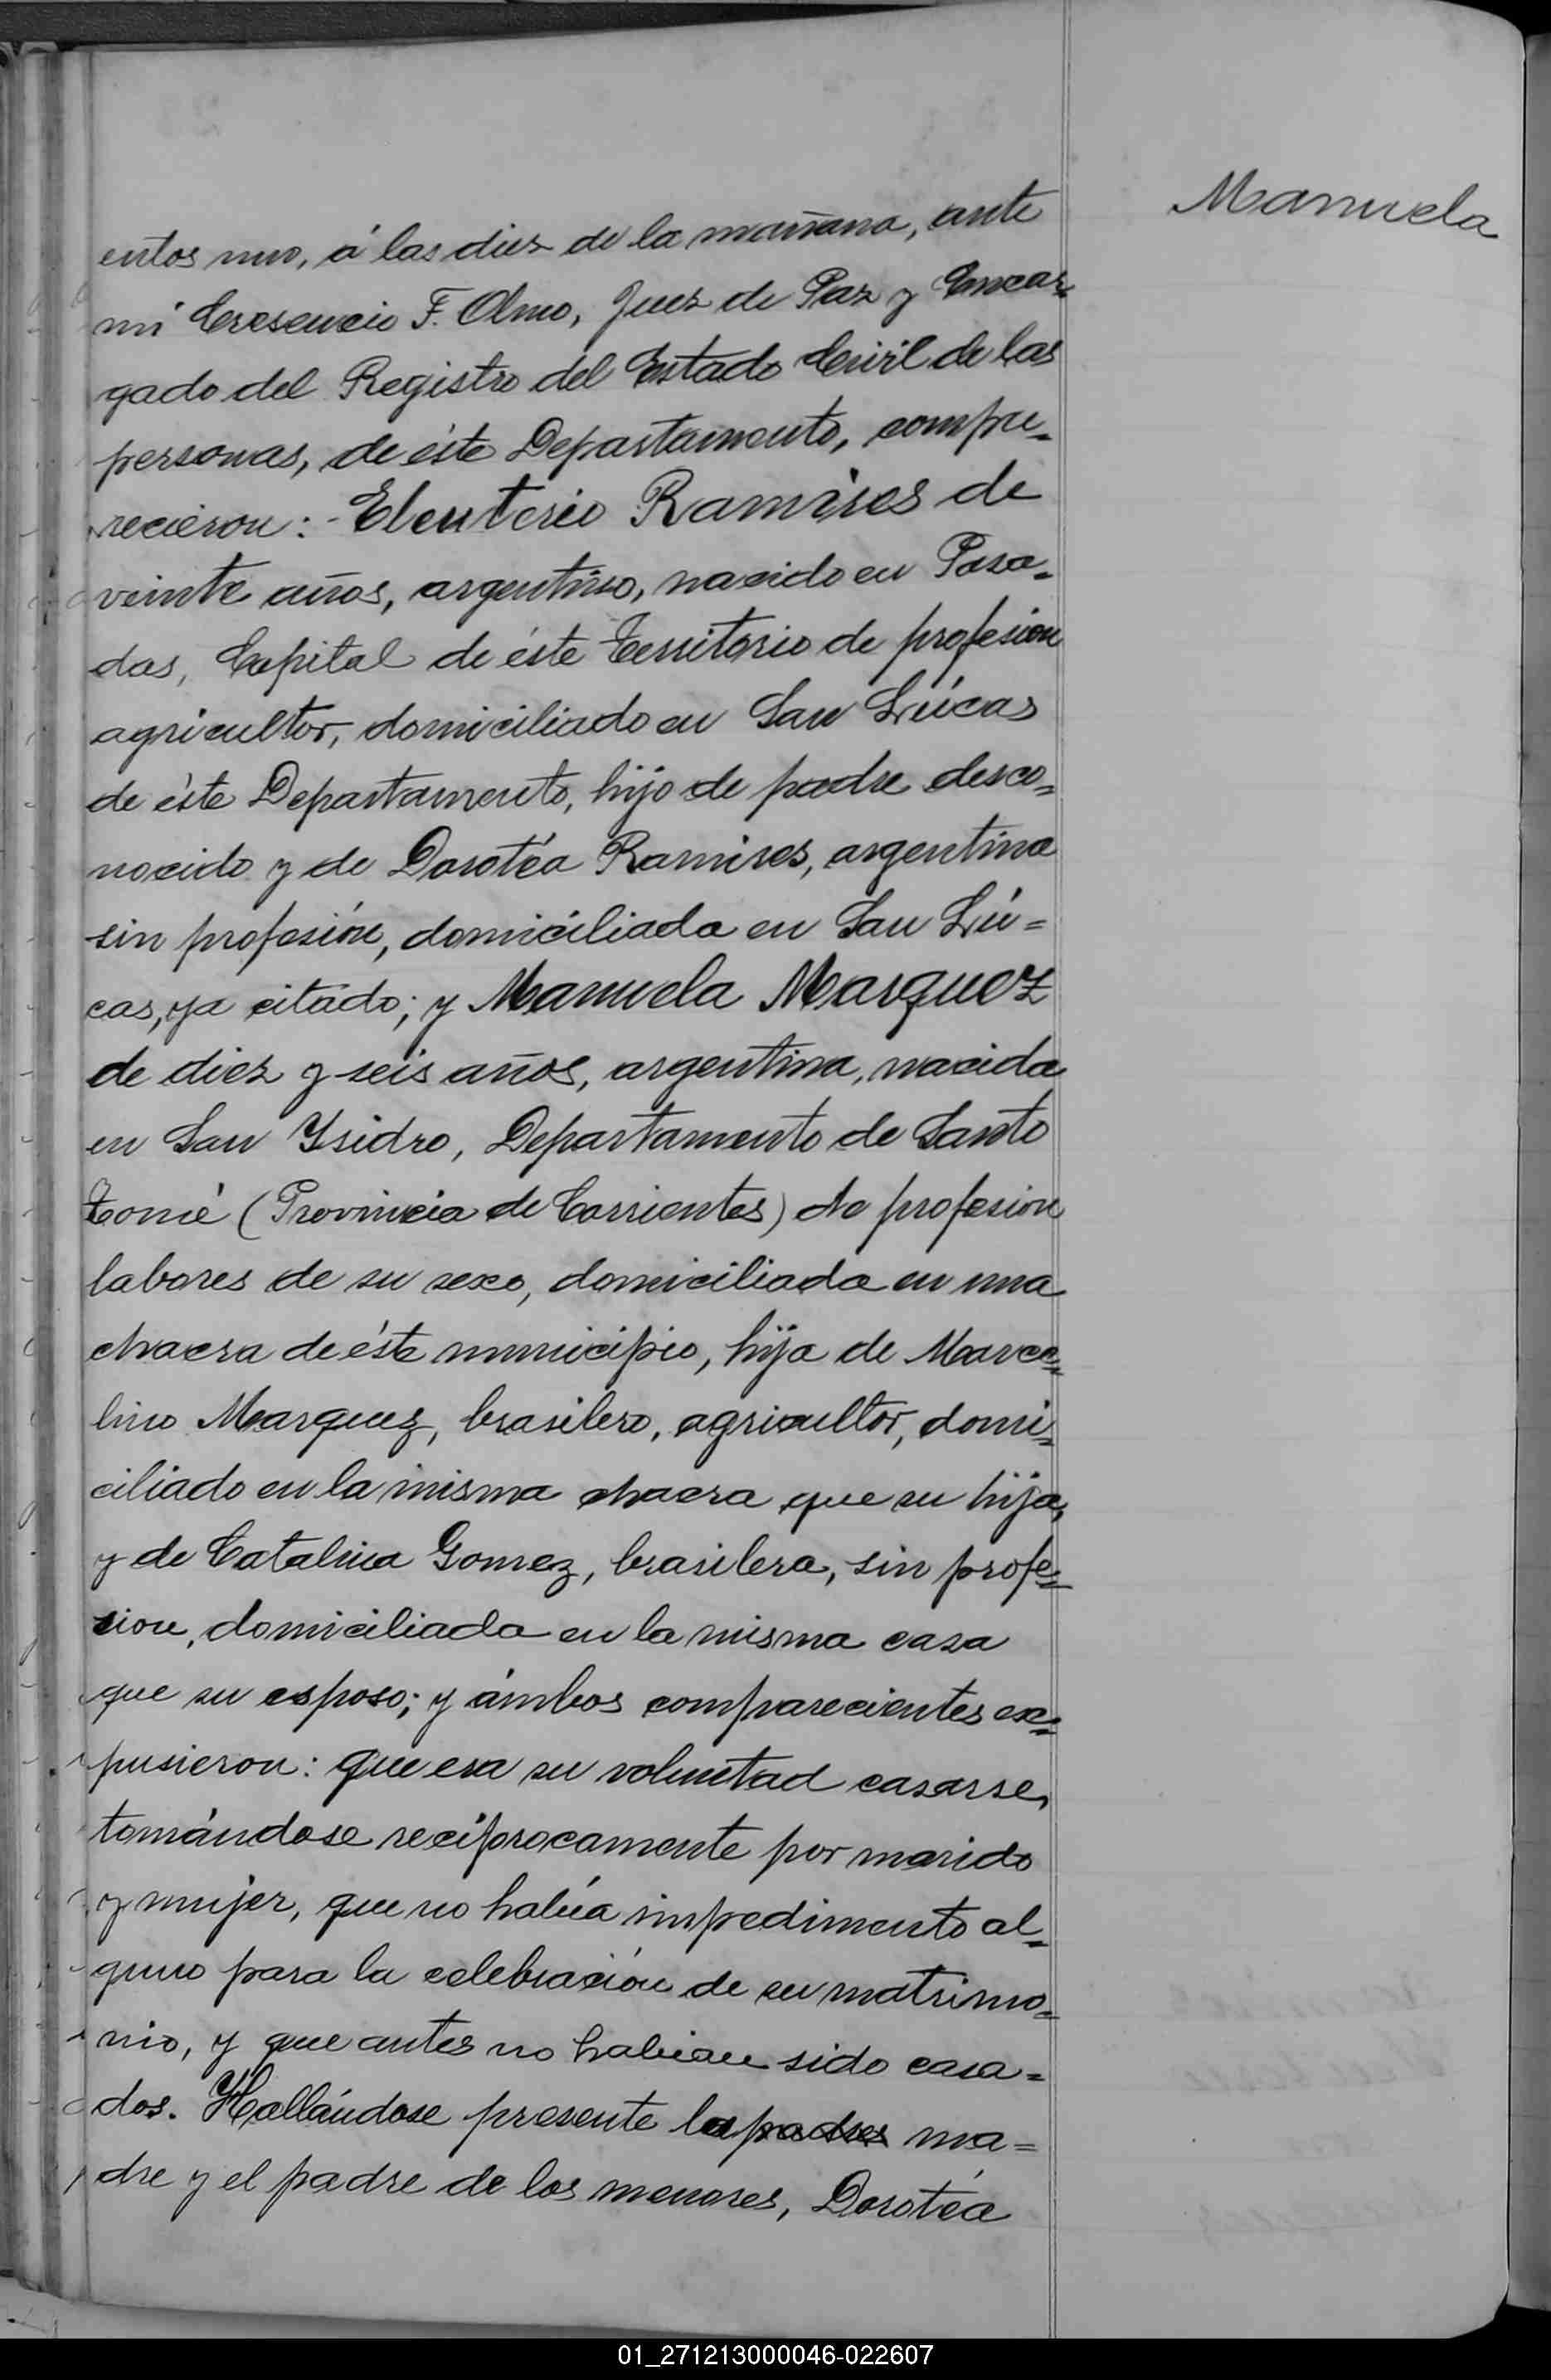 Manuela
entos uno, á las diez de la mañana, ante
mi Cresencio F. Olmo, Juez de Paz y Encar=
gado del Registro del Estado Civil de las
personas, de éste Departamento, compa=
recieron:- Eleuterio Ramires de
veinte años, argentino, nacido en Posa=
das, Capital de éste Territorio de profesion
agricultor, domiciliado en San Lúcas
de éste Departamento, hijo de padre desco=
nocido y de Dorotéa Ramires, argentina
sin profesión, domiciliada en San Lú=
cas, ya citado; y Manuela Marquez
de diez y seis años, argentina, nacida
en San Ysidro, Departamento de Santo
Tomé (Provincia de Corrientes) de profesion
labores de su sexo, domiciliada en una
chacra de éste municipio, hija de Marce=
lino Marquez, brasilero, agricultor, domi=
ciliado en la misma chacra que su hija,
y de Catalina Gomez, brasilera, sin profe=
sion, domiciliada en la misma casa
que su esposo; y ámbos comparecientes ex=
pusieron: que era su voluntad casarse,
tomándose reciprocamente por marido
y mujer, que no había impedimento al=
guno para la celebración de su matrimo=
nio, y que antes no habian sido casa=
dos. Hallándose presente la padres ma=
dre y el padre de los menores, Dorotéa
01_271213000046-022607